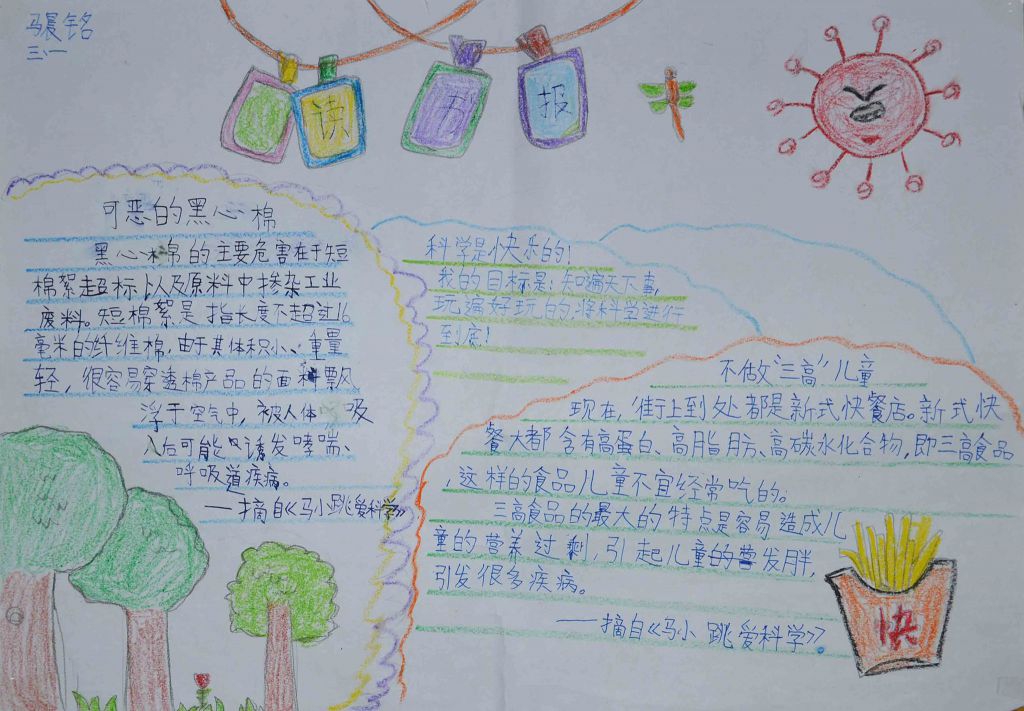 马晨铭
三、一
读书报
可恶的黑心棉
黑心棉的主要危害在于短
棉絮超标以及原料中掺杂工业
废料。短棉絮是指长度不超过16
毫米的纤维棉,由于其体积小、重量
轻,很容易穿透棉产品的面料飘
浮于空气中,被人体吸
入后可能会诱发哮喘、
呼吸道疾病。
——摘自《马小跳爱科学》
科学是快乐的!
我的目标是:知遍天下事,
玩遍好玩的,将科学进行
到底!
不做“三高”儿童
现在,街上到处都是新式快餐店。新式快
餐大都含有高蛋白、高脂肪、高碳水化合物,即三高食品
,这样的食品儿童不宜经常吃的。
三高食品的最大的特点是容易造成儿
童的营养过剩,引起儿童的营发胖,
引发很多疾病。
——摘自《马小跳爱科学》。
快